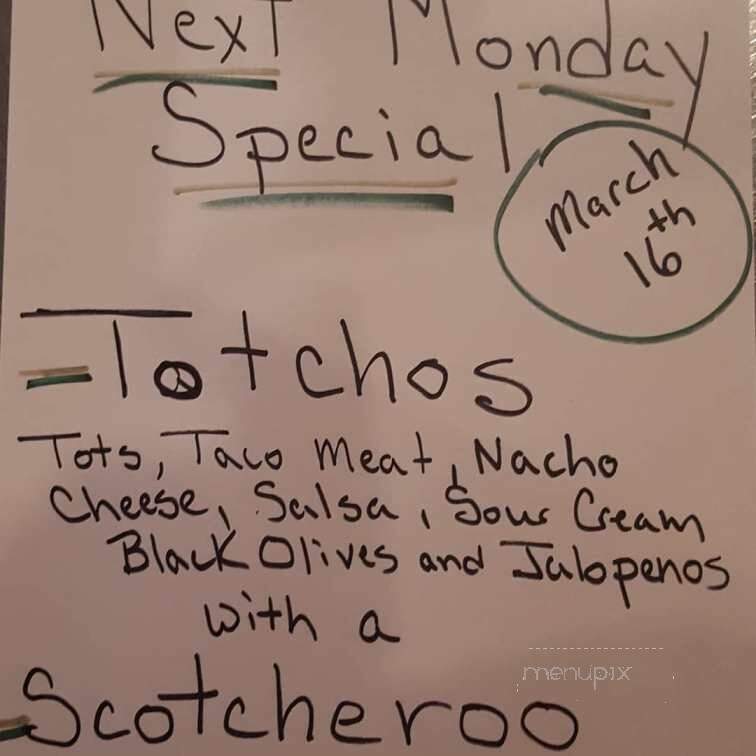 Next Monday
Special
March
16th
- Totchos
Tots, Taco Meat, Nacho
Cheese, Salsa, Sour Cream
Black Olives and Jalopenos
with a
menupix
- Scotcheroo